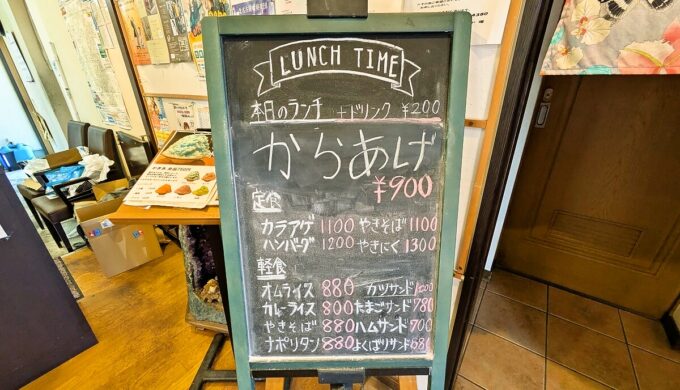 LUNCH TIME
本日のランチ +ドリンク ¥200
からあげ
¥900
定食
カラアゲ 1100 やきそば 1100
ハンバーグ 1200 やきにく 1300
軽食
オムライス 880 カツサンド 1000
カレーライス 800 たまごサンド 780
やきそば 880 ハムサンド 700
ナポリタン 880 よくばりサンド 680